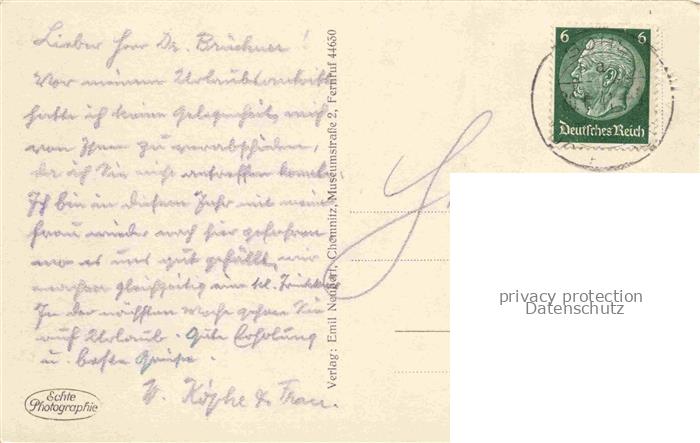 Lieber Herr Dr. Brückner!
Vor meinem Urlaubsantritt
hatte ich keine Gelegenheit, mich
von Ihnen zu verabschieden,
da ich Sie nicht antreffen konnte.
Ich bin in diesem Jahr mit meiner
Frau wieder nach hier gefahren
wo es uns gut gefällt, wir
machen gleichzeitig eine kl. Trinkkur
In der nächsten Woche gehen Sie
auf Urlaub. Gute Erholung
u. beste Grüsse.
& Frau.
Echte
Photographie
Verlag: Emil Neubert, Chemnitz, Museumstraße 2, Fernruf 44630
6 6
Deutsches Reich
privacy protection
Datenschutz